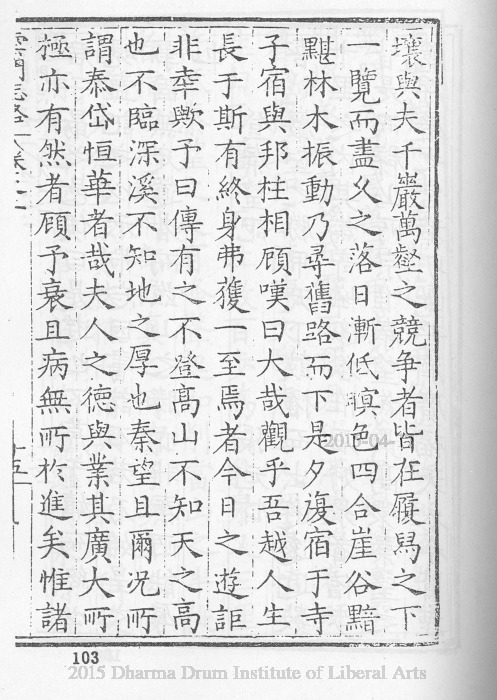 壤與夫千巖萬壑之競爭者皆在履舄之下
一覽而盡久之落日漸低暝色四合崖谷黯
黮林木振動乃尋舊路而下是夕復宿于寺
子宿與邦柱相顧嘆曰大哉觀乎吾越人生
長于斯有終身弗獲一至焉者今日之遊詎
非幸歟予曰傳有之不登高山不知天之高
也不臨深溪不知地之厚也秦望且爾况所
謂泰岱恒華者哉夫人之德與業其廣大所
極亦有然者顧予衰且病無所於進矣惟諸
雲門志略
十五
103
2015 Dharma Drum Institute of Liberal Arts